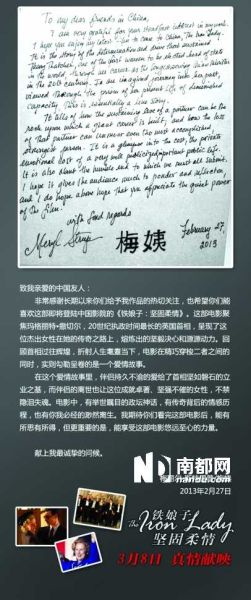 To my dear friends in China,
I am very grateful for your steadfast interest in my work.
I hope you enjoy my latest film to come to China, The Iron Lady.
It is the story of the determination and drive that sustained
Margaret Thatcher, one of the first women to be elected head of state
in the world, through her career as the longest serving Prime Minister
in the 20th century. It is an imagined journey into her past,
viewed through the prism of her present life of diminished
capacity. This is essentially a love story.
It tells of how the sustaining love of a partner can be the
rock upon which a great career is built, and how the loss
of that partner can
the most accomplished
person. It is a glimpse into the cost, the private
emotional cost of a very public life.
It is also about the
end to which we must all submit.
I hope it gives the audience much to ponder and reflection,
and I do hope above hope that you appreciate the quiet power
of the film.
with fond regards
Meryl Streep
梅姨
February 27,
2013
致我亲爱的中国友人:
非常感谢长期以来你们给予我作品的热切关注,也希望你们能喜
欢这部即将登陆中国影院的《铁娘子:坚固柔情》。这部电影聚
焦玛格丽特·撒切尔,20世纪执政时间最长的英国首相,呈现了这
位杰出女性在她的传奇之路上,熔炼出的坚毅决心和源源动力。回
顾首相过往辉煌,折射人生耄耋当下,电影在精巧穿梭二者之间的
同时,实则勾勒呈卷的是一个爱情故事。
在这个爱情故事里,伴侣持久不渝的爱给了首相坚如磐石的立
业之基,而伴侣的离世也让这位成就卓著、至强不催的女性,不禁
隐泪失魂。电影中,有举世瞩目的政坛神话,有传奇背后的情感历
程,也有你我必经的渺然离生。我期待你们看完这部电影后,能有
所思有所得,但更重要的是,能享受这部电影悠远至心的力量。
献上我最诚挚的问候。
南都网
2013年2月27日
铁娘子
The Iron Lady
坚固柔情
3月8日 真情献映